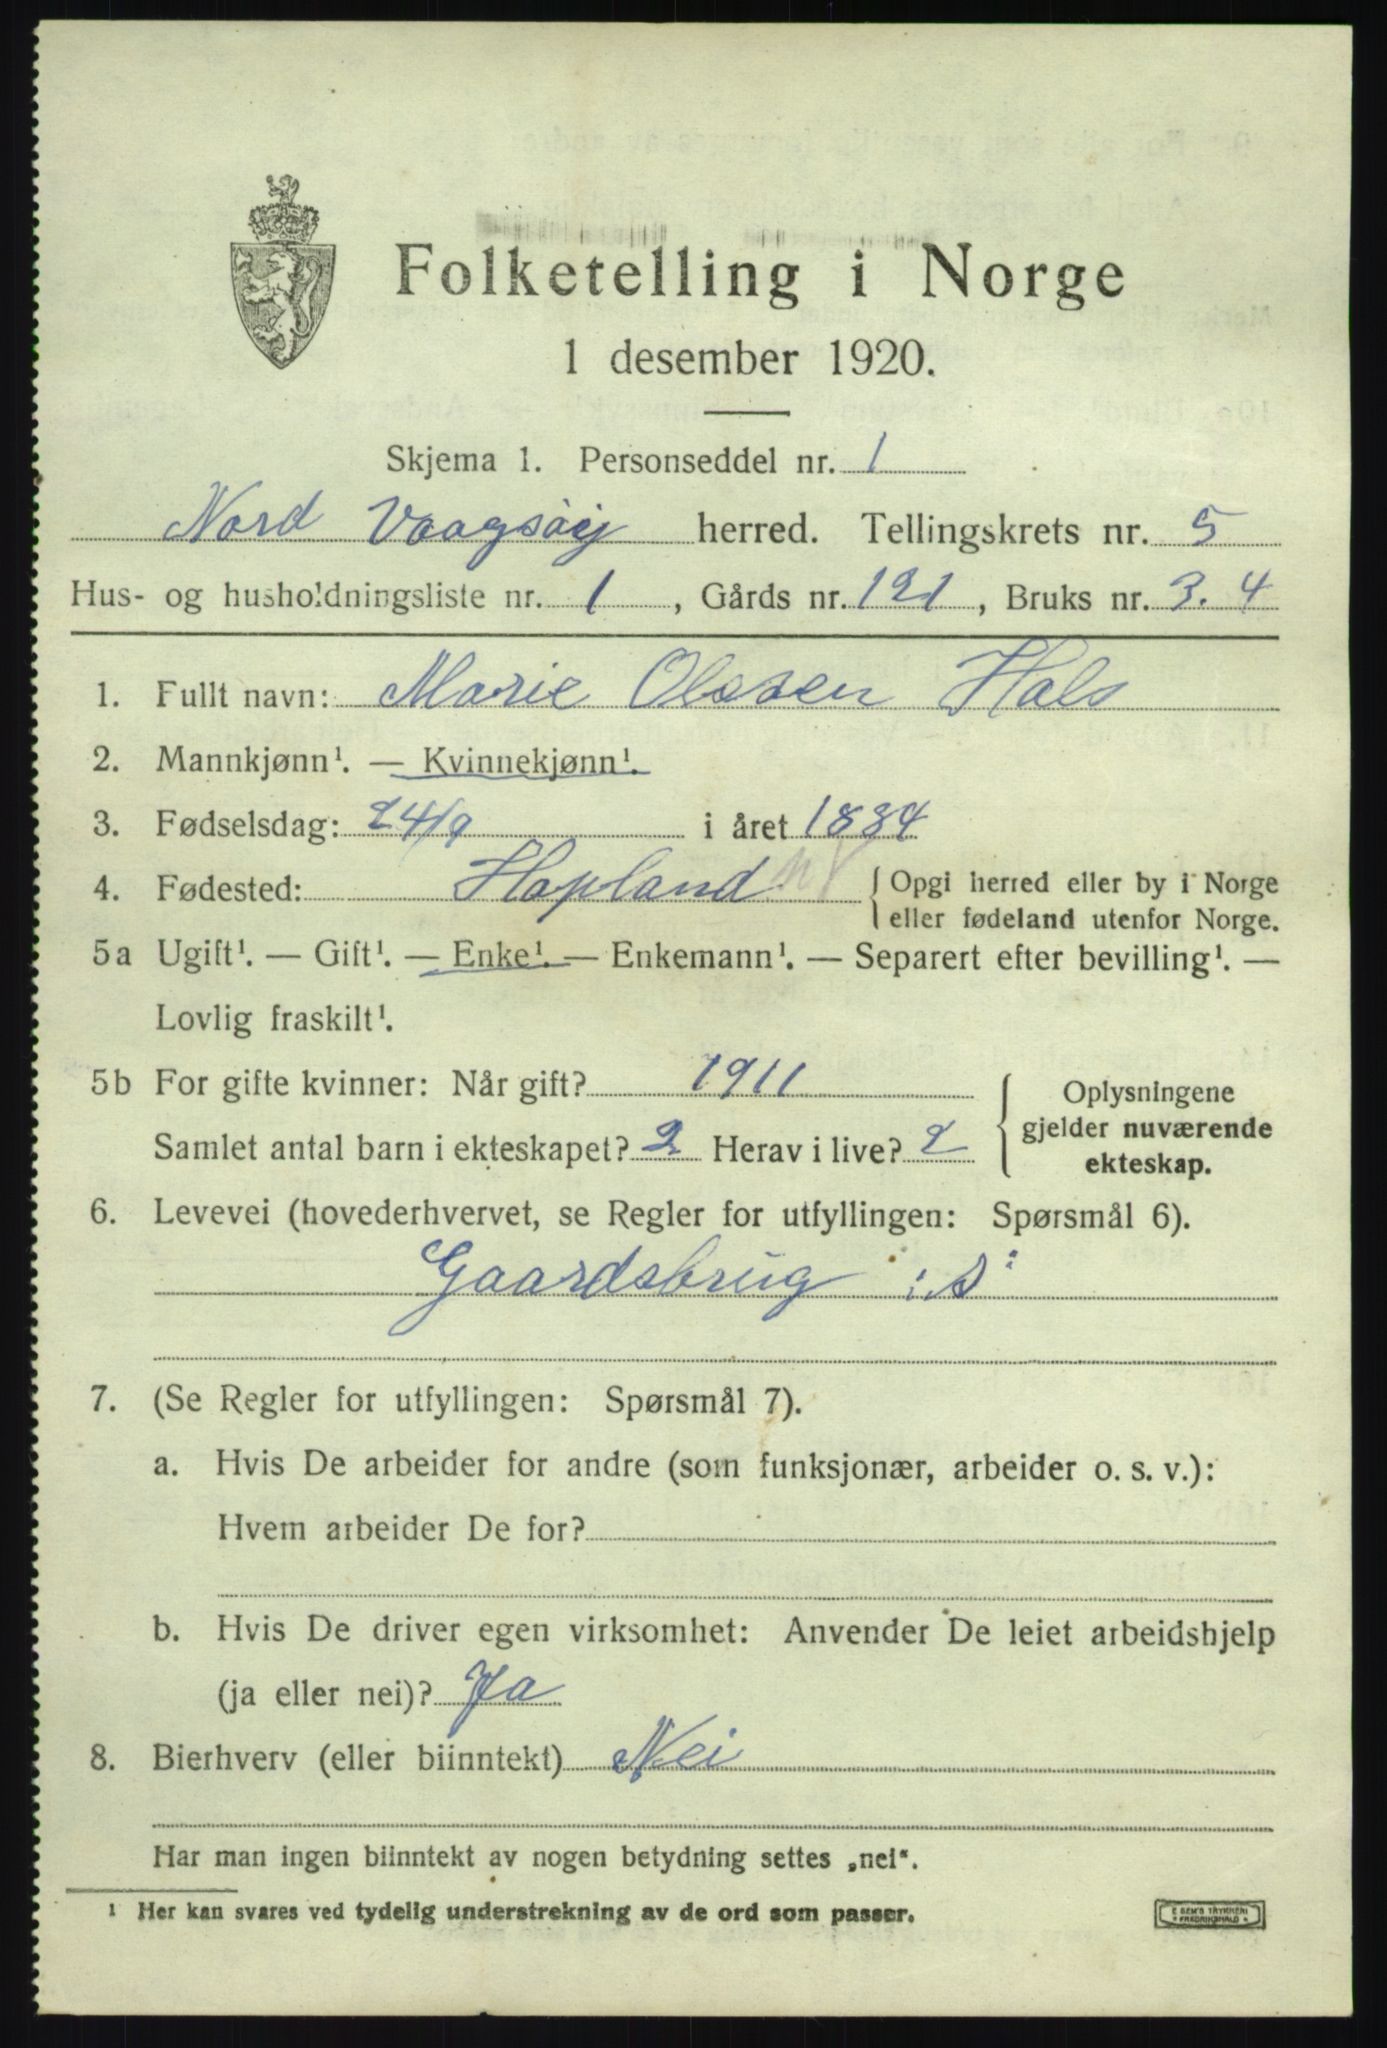 Folketelling i Norge
1 desember 1920.
Skjema 1. Personseddel nr. 1
Nord Vaagsöy herred. Tellingskrets nr. 5
Hus- og husholdningsliste nr. 1, Gårds nr. 121, Bruks nr. 3. 4
1. Fullt navn: Marie Olssen Hals
2. Mannkjønn¹. — Kvinnekjønn¹.
3. Fødselsdag: 24/9 i året 1884
4. Fødested: Hopland { Opgi herred eller by i Norge
eller fødeland utenfor Norge.
5a Ugift¹. — Gift¹. — Enke¹. — Enkemann¹. — Separert efter bevilling¹. —
Lovlig fraskilt¹.
5b For gifte kvinner: Når gift? 1911
Samlet antal barn i ekteskapet? 2 Herav i live? 2
{ Oplysningene
gjelder nuværende
ekteskap.
6. Levevei (hovederhvervet, se Regler for utfyllingen: Spørsmål 6).
Gaardsbrug :s:
7. (Se Regler for utfyllingen: Spørsmål 7).
a. Hvis De arbeider for andre (som funksjonær, arbeider o. s. v.):
Hvem arbeider De for?
b. Hvis De driver egen virksomhet: Anvender De leiet arbeidshjelp
(ja eller nei)? Ja
8. Bierhverv (eller biinntekt) Nei
Har man ingen biinntekt av nogen betydning settes „nei“.
¹ Her kan svares ved tydelig understrekning av de ord som passer.
E SEM'S TRYKKERI
FREDRIKSHALD